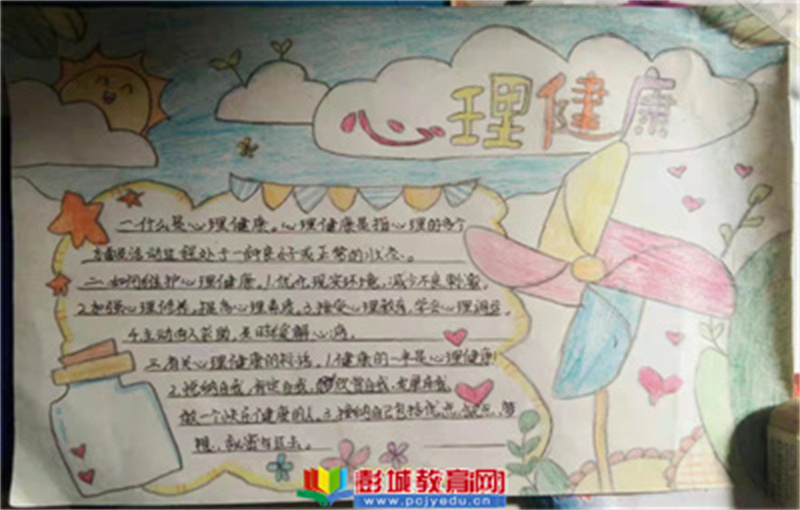 心理健康
一什么是心理健康。心理健康是指心理的各个
方面及活动过程处于一种良好或正常的状态。
二.如何维护心理健康。1.优化现实环境,减少不良刺激。
2.加强心理修养,提高心理素质。3.接受心理教育,学会心理调适。
4.主动向人求助,及时缓解心病。
三.有关心理健康的标语。1.健康的一半是心理健康!
2.接纳自我,肯定自我,欣赏自我,发展自我,
做一个快乐健康的人。3.接纳自己包括优点,缺点,梦
想,秘密与过去。
彭城教育网
www.pcjyedu.cn